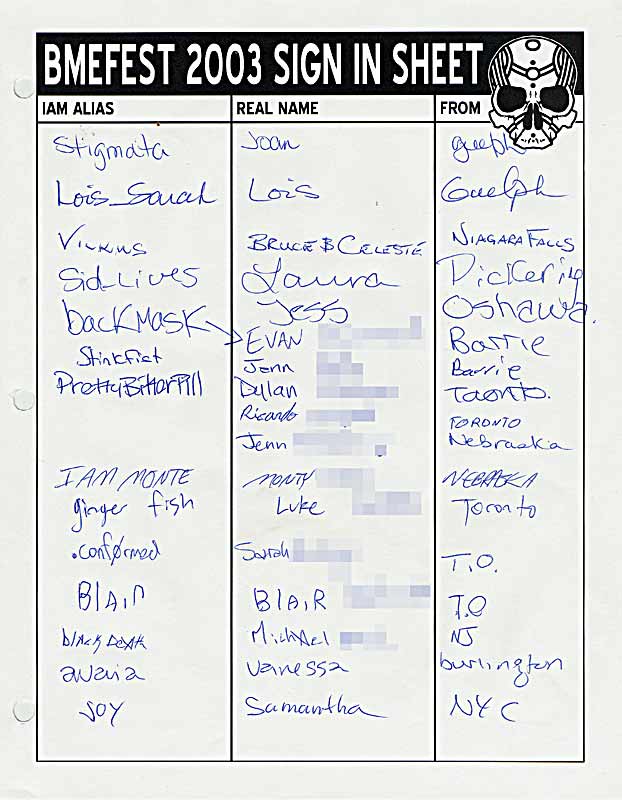 BMEFEST 2003 SIGN IN SHEET
IAM ALIAS REAL NAME FROM
Stigmata Joan guelph
Lois_Sarah Lois Guelph
Vikkus BRUCE & CELESTE NIAGARA FALLS
Sid_Lives Laura Pickering
backMASK Jess Oshawa.
EVAN Barrie
Stinkfist Jenn Barrie
PrettyBitterPill Dylan Taornto.
Ricardo TORONTO
Jenn Nebraska
IAM MONTE MONTY NEBRASKA
ginger fish Luke Toronto
.confØrmed Sarah T.O.
BLAIR BLAIR T.O
black death Michael NJ
avaria Vanessa burlington
JOY Samantha NYC